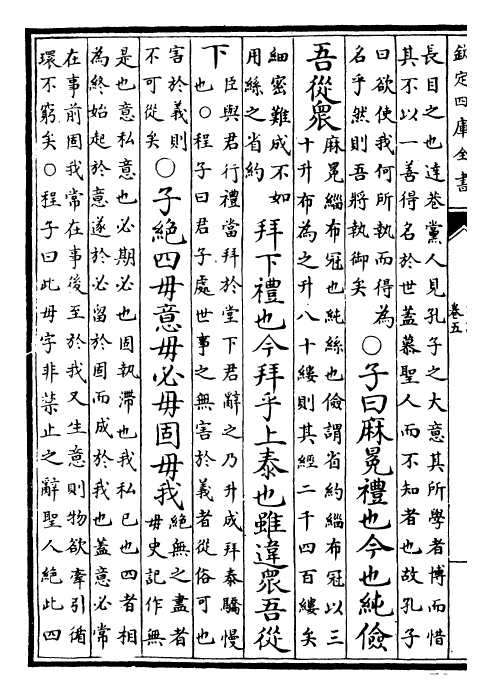 欽定四庫全書
卷五
長目之也達巷黨人見孔子之大意其所學者博而惜
其不以一善得名於世蓋慕聖人而不知者也故孔子
曰欲使我何所執而得為
名乎然則吾將執御矣
〇子曰麻冕禮也今也純儉
吾從衆
麻冕緇布冠也純絲也儉謂省約緇布冠以三
十升布為之升八十縷則其經二千四百縷矣
細密難成不如
用絲之省約
拜下禮也今拜乎上泰也雖違衆吾從
下
臣與君行禮當拜於堂下君辭之乃升成拜泰驕慢
也〇程子曰君子處世事之無害於義者從俗可也
害於義則
不可從矣
〇子絶四毋意毋必毋固毋我
絶無之盡者
毋史記作無
是也意私意也必期必也固執滯也我私已也四者相
為終始起於意遂於必留於固而成於我也蓋意必常
在事前固我常在事後至於我又生意則物欲牽引循
環不窮矣〇程子曰此毋字非禁止之辭聖人絶此四